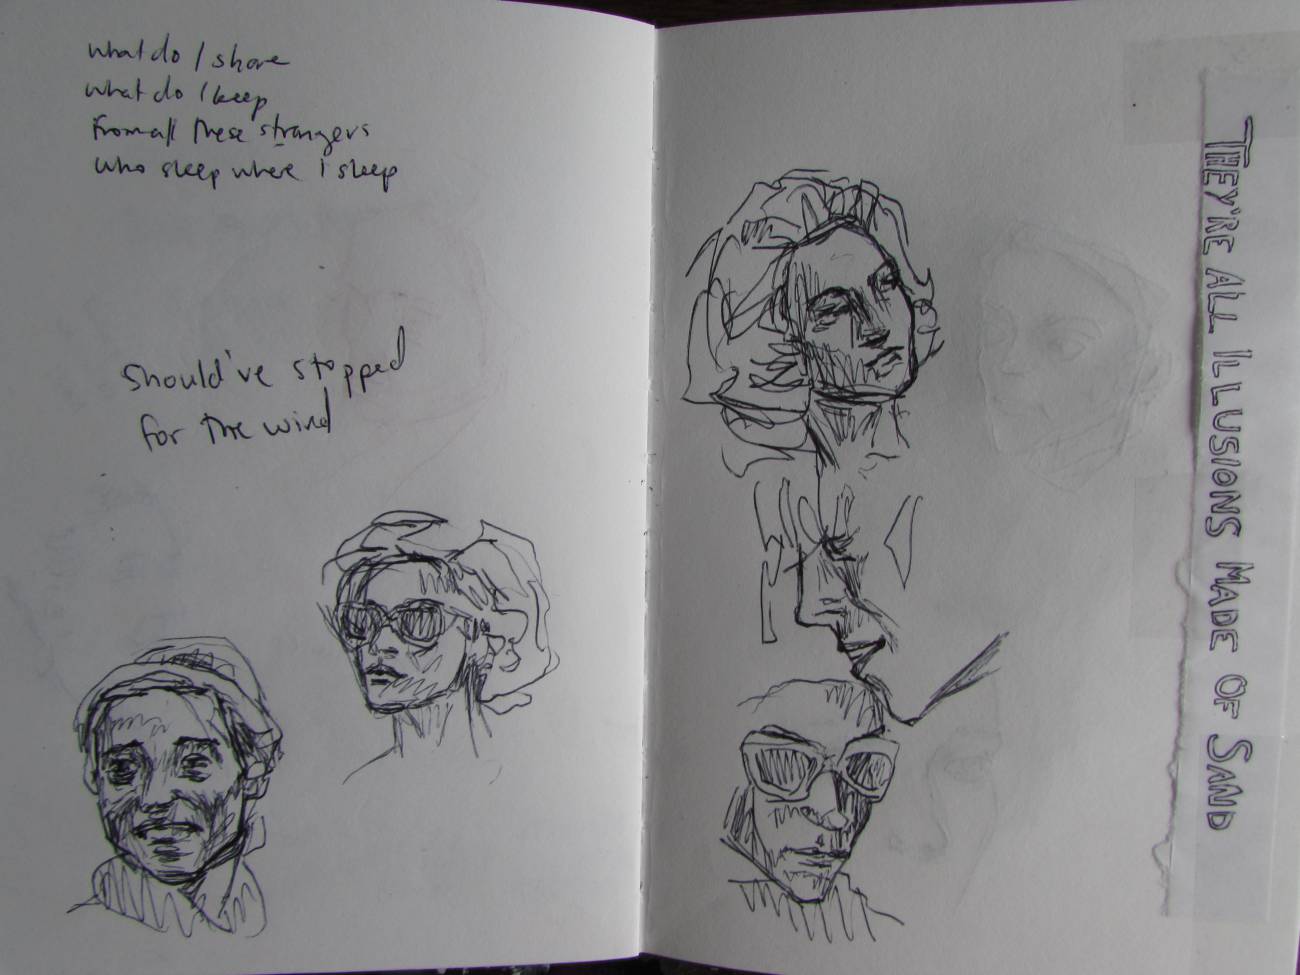 what do I share
what do I keep
from all these strangers
who sleep where I sleep
Should've stopped
for the wind
THEY'RE ALL ILLUSIONS MADE OF SAND